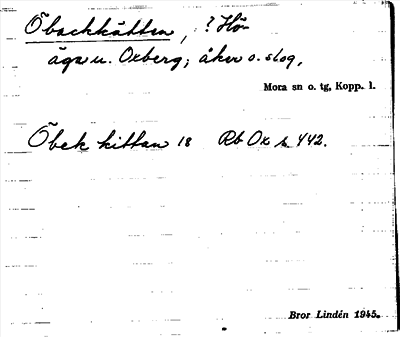 Öbackkätten, ? Hö-
ägr u. Oxberg; åker o. skog,
Mora sn o. tg, Kopp. l.
Öbek kittan 18 Rb Ox s. 442.
Bror Lindén 1945.